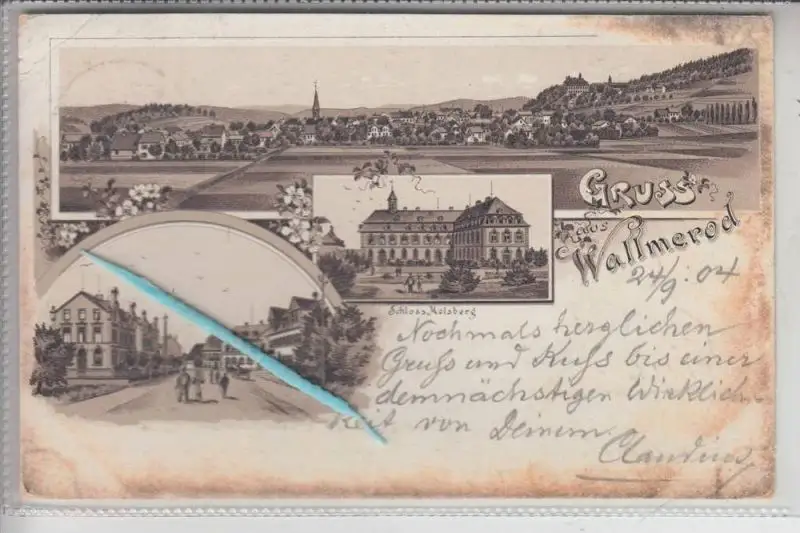 Gruss
aus
Wallmerod
Schloss Molsberg
24/9. 04
Nochmals herzlichen
Gruß und Kuß bis einer
demnächstigen Wirklich-
keit von Deinem
Claudius